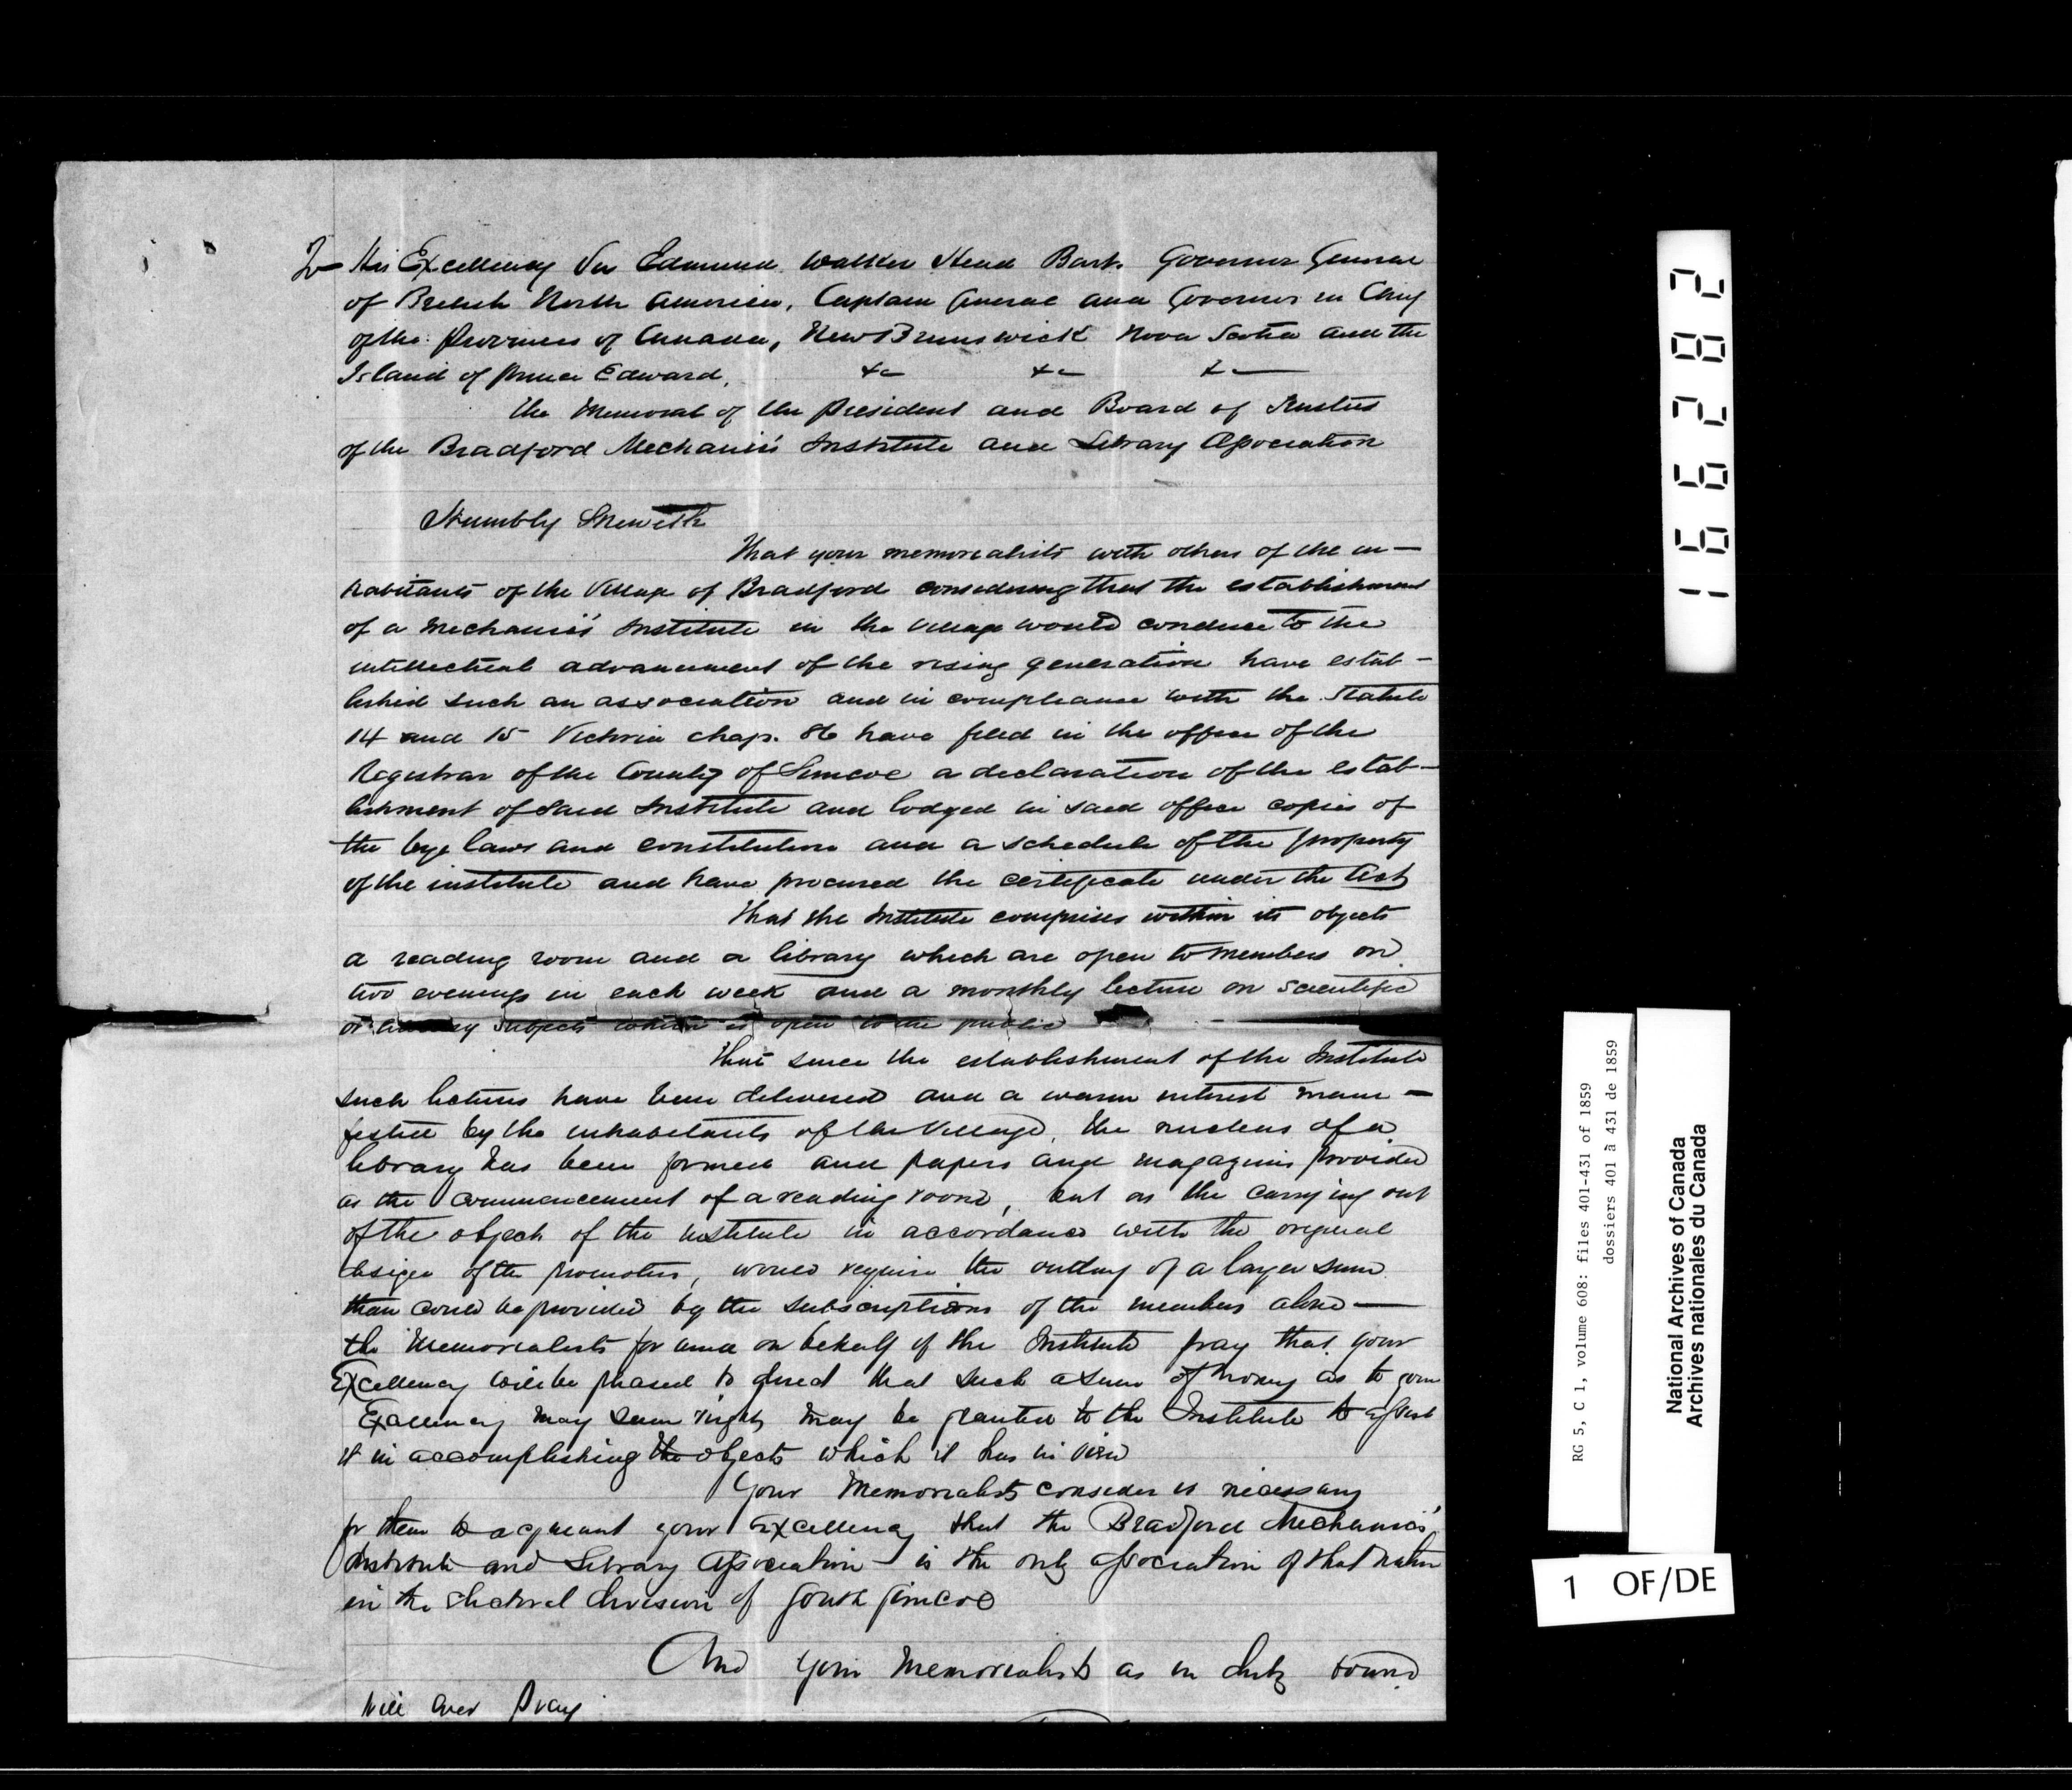 To His Excellency Sir Edmund Walker Head Bart. Governor General
of British North America, Captain General and Governor in Chief
of the Provinces of Canada, New Brunswick Nova Scotia and the
Island of Prince Edward, &c &c &c
The Memorial of the President and Board of Trustees
of the Bradford Mechanics' Institute and Library Association
Humbly Sheweth
That your memorialists with others of the in-
habitants of the Village of Bradford considering that the establishment
of a Mechanics' Institute in the Village would conduce to the
intellectual advancement of the rising generation have estab-
lished such an association and in compliance with the Statute
14 and 15 Victoria chap. 86 have filed in the office of the
Registrar of the County of Simcoe a declaration of the estab-
lishment of said Institute and lodged in said office copies of
the bye laws and constitution and a schedule of the property
of the institute and have procured the certificate under the Act
That the Institute comprises within its objects
a reading room and a library which are open to members on
two evenings in each week and a monthly lecture on scientific
or literary subjects which is open to the public
That since the establishment of the Institute
such lectures have been delivered and a warm interest mani-
fested by the inhabitants of the Village, the nucleus of a
library has been formed and papers and magazines provided
as the commencement of a reading room, but as the carrying out
of the objects of the institute in accordance with the original
design of the promoters, would require the outlay of a larger sum
than could be provided by the subscriptions of the members alone—
the Memorialists for and on behalf of the Institute pray that your
Excellency will be pleased to direct that such a sum of money as to your
Excellency may seem right may be granted to the Institute to assist
it in accomplishing the objects which it has in view
Your Memorialists consider it necessary
for them to acquaint your Excellency that the Bradford Mechanics'
Institute and Library Association is the only association of that nature
in the electoral division of South Simcoe
And your Memorialists as in duty bound
will ever Pray
166282
RG 5, C 1, volume 608: files 401-431 of 1859
dossiers 401 à 431 de 1859
National Archives of Canada
Archives nationales du Canada
1 OF/DE